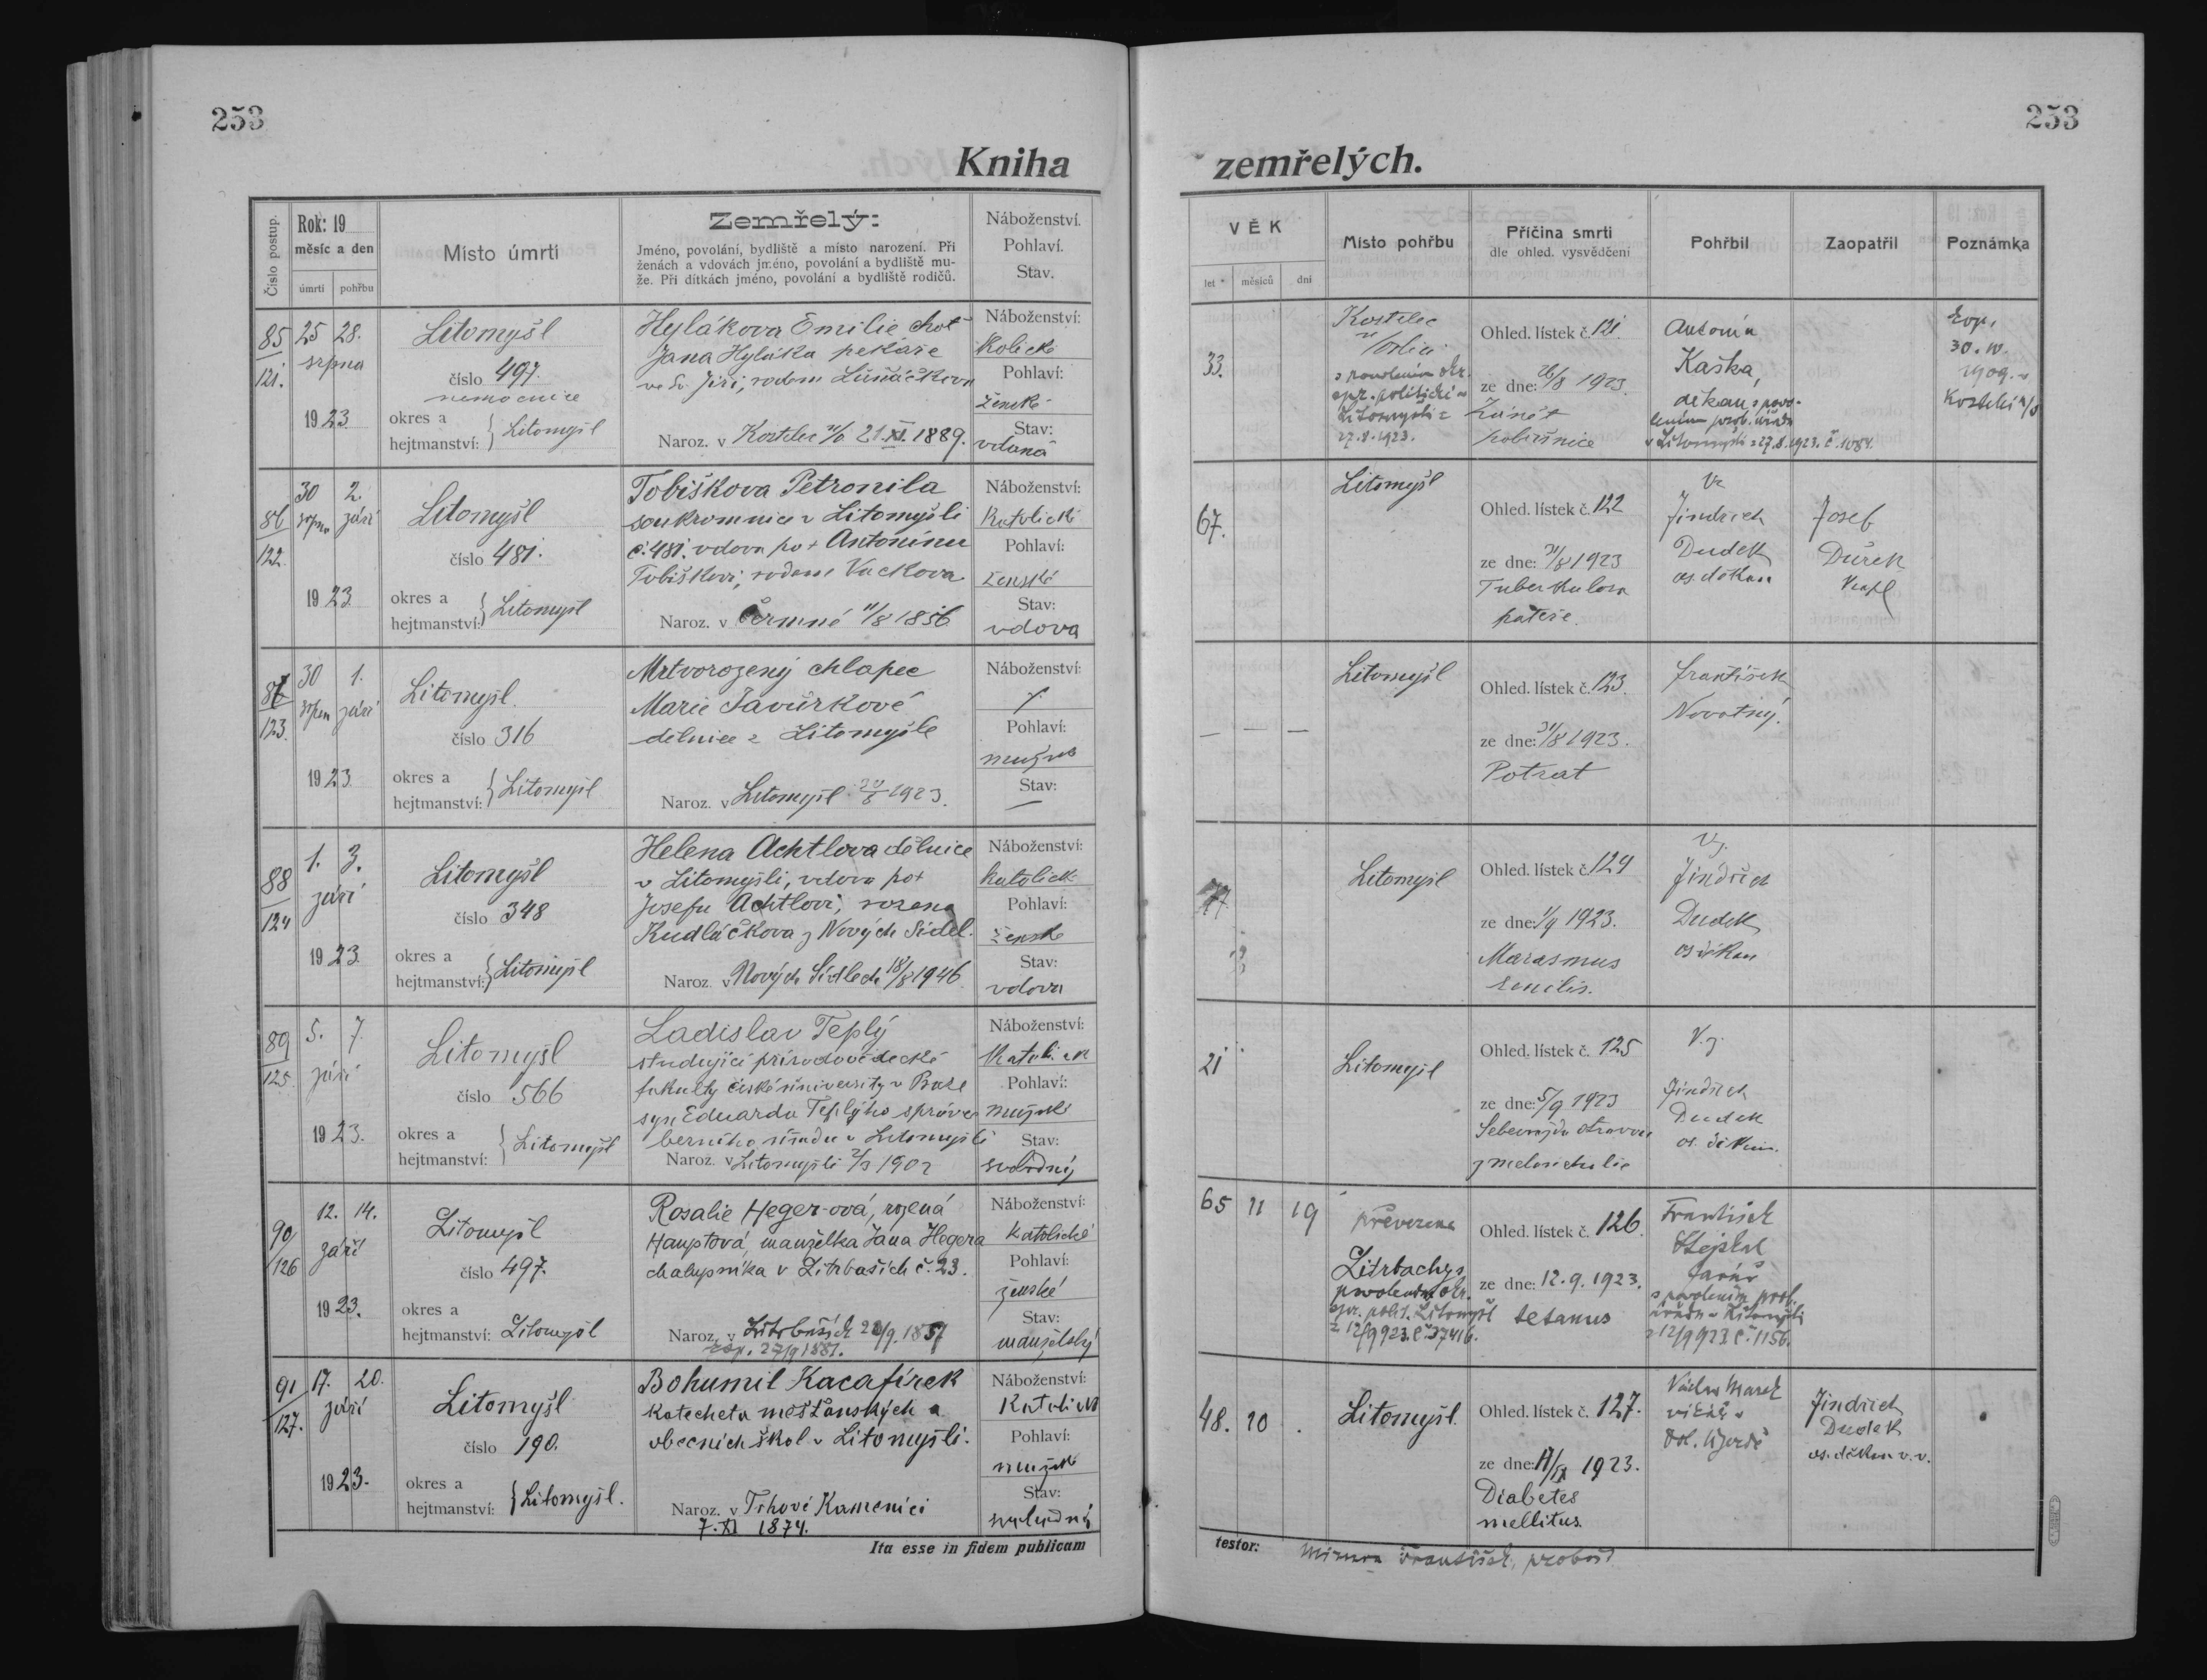 253
253
Kniha
zemřelých.
Číslo postup.
Rok: 19
měsíc a den
úmrtí
pohřbu
Místo úmrtí
Zemřelý:
Jméno, povolání, bydliště a místo narození. Při
ženách a vdovách jméno, povolání a bydliště mu-
že. Při dítkách jméno, povolání a bydliště rodičů.
Náboženství.
Pohlaví.
Stav.
VĚK
let
měsíců
dní
Místo pohřbu
Příčina smrti
dle ohled. vysvědčení
Pohřbil
Zaopatřil
Poznámka
85
121.
25 28.
srpna
1923
Litomyšl
číslo 497.
nemocnice
okres a
hejtmanství: Litomyšl
Hylákova Emilie choť
Jana Hyláka pekaře
ve Sv. Jiří, rodem
Naroz. v Kostelec n/O 21.XI.1889.
Náboženství:
Pohlaví:
ženské
Stav:
vdaná
33.
Kostelec
n Orlicí
s povolením okr.
spr. politické v
Litomyšli z
27.8.1923.
Ohled. lístek č. 121.
ze dne: 26/8 1923
Zánět
pobřišnice
Antonín
Kaška,
děkan, s povo-
lením
v Litomyšli z 27.8.1923. č. 1084.
30. IV.
1909. v
Kostelci n/O
86
122.
30 2.
srpna září
1923
Litomyšl
číslo 481.
okres a
hejtmanství: Litomyšl
Tobiškova Petronila
soukromnice v Litomyšli
č. 481. vdova po + Antonínu
Tobiškovi, rodem Vackova
Naroz. v Čermné 11/8 1856
Náboženství:
Katolické
Pohlaví:
ženské
Stav:
vdova
67.
Litomyšl
Ohled. lístek č. 122
ze dne: 31/8 1923
Tuberkulosa
páteře.
Jindřich
Dudek
os. děkan
Josef
Durek
kapl
87
123.
30 1.
srpen září
1923
Litomyšl.
číslo 316
okres a
hejtmanství: Litomyšl
Mrtvorozený chlapec
Marie Javůrkové
dělnice z Litomyšle
Naroz. v Litomyšl 30/8 1923.
Náboženství:
Pohlaví:
mužské
Stav:
— — —
Litomyšl
Ohled. lístek č. 123.
ze dne: 31/8 1923.
Potrat
František
Novotný.
88
124
1. 3.
září
1923
Litomyšl
číslo 348
okres a
hejtmanství: Litomyšl
Helena Achtlova dělnice
v Litomyšli, vdova po +
Josefu Achtlovi, rozena
Kudláčkova z Nových Sídel.
Naroz. v Nových Sídlech 18/8 1946
Náboženství:
katolick
Pohlaví:
ženské
Stav:
vdova
77
Litomyšl
Ohled. lístek č. 124
ze dne: 1/9 1923.
Marasmus
senilis.
Jindřich
Dudek
os děkan
89
125
5. 7.
září
1923.
Litomyšl
číslo 566
okres a
hejtmanství: Litomyšl
Ladislav Teplý
studující přírodovědecké
fakulty české university v Praze
syn Eduarda Teplýho správce
berního úřadu v Litomyšli
Naroz. v Litomyšli 2/3 1902
Náboženství:
Pohlaví:
mužské
Stav:
svobodný
21
Litomyšl
Ohled. lístek č. 125
ze dne: 5/9 1923
Sebevražda otravou
z melancholie
Jindřich
Dudek
os. děkan.
90
126
12. 14.
září
1923.
Litomyšl
číslo 497.
okres a
hejtmanství: Litomyšl
Rosalie Heger-ová, rozená
Hauptová, manželka Jana Hegera
chalupníka v Litrbaších č. 23.
Naroz. v Litrbaších
Náboženství:
katolické
Pohlaví:
ženské
Stav:
manželský
65 11 19
převezena
Litrbachy s
povolením okr.
spr. polit. Litomyšl
z 12/9 923. č. 37416.
Ohled. lístek č. 126.
ze dne: 12.9.1923.
tetanus
František
Stejskal
farář
s povolením
úřadu v Litomyšli
z 12/9 923 č. 1156.
91
127.
17. 20.
září
1923.
Litomyšl
číslo 190.
okres a
hejtmanství: Litomyšl.
Bohumil Kacafírek
katecheta měšťanských a
obecních škol v Litomyšli.
Naroz. v Trhové Kamenici
7. XI 1874.
Náboženství:
Pohlaví:
mužské
Stav:
svobodný
48. 10
Litomyšl.
Ohled. lístek č. 127.
ze dne: 17/IX 1923.
Diabetes
mellitus.
Václav Marek
vikář v
Dol. Újezdě
Jindřich
Dudek
os. děkan v. v.
Ita esse in fidem publicam
testor:
František, probošt